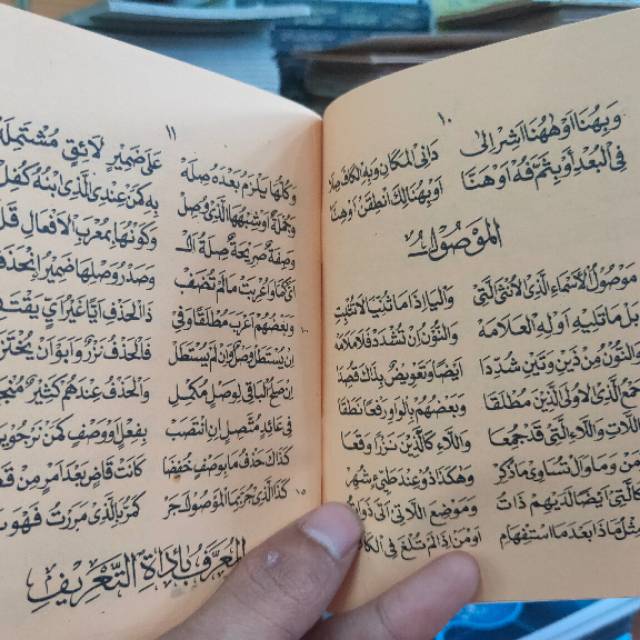 ١٠
وَبِهُنَا أَوْ هٰهُنَا أَشِرْ إِلَى دَانِي الْمَكَانِ وَبِهِ الْكَافَ صِلَا
فِي الْبُعْدِ أَوْ بِثَمَّ فُهْ أَوْ هَنَّا أَوْ بِهُنَالِكَ انْطِقَنْ أَوْ هِنَّا
الْمَوْصُولُ
مَوْصُولُ الْأَسْمَاءِ الَّذِى الْأُنْثَى الَّتِى وَالْيَا إِذَا مَا ثُنِّيَا لَا تُثْبِتِ
بَلْ مَا تَلِيهِ أَوْلِهِ الْعَلَامَهْ وَالنُّونُ إِنْ تُشْدَدْ فَلَا مَلَامَهْ
وَالنُّونُ مِنْ ذَيْنِ وَتَيْنِ شُدِّدَا أَيْضًا وَتَعْوِيضٌ بِذَاكَ قُصِدَا
جَمْعُ الَّذِى الْأُولَى الَّذِينَ مُطْلَقَا وَبَعْضُهُمْ بِالْوَاوِ رَفْعًا نَطَقَا
بِاللَّاتِ وَاللَّاءِ الَّتِى قَدْ جُمِعَا وَاللَّاءِ كَالَّذِينَ نَزْرًا وَقَعَا
وَمَنْ وَمَا وَأَلْ تُسَاوِى مَا ذُكِرْ وَهٰكَذَا ذُو عِنْدَ طَيِّئٍ شُهِرْ
وَكَالَّتِى أَيْضًا لَدَيْهِمْ ذَاتُ وَمَوْضِعَ اللَّاتِى أَتَى ذَوَاتُ
وَمِثْلُ مَاذَا بَعْدَ مَا اسْتِفْهَامِ أَوْ مَنْ إِذَا لَمْ تُلْغَ فِى الْكَلَامِ
١١
وَكُلُّهَا يَلْزَمُ بَعْدَهُ صِلَهْ عَلَى ضَمِيرٍ لَائِقٍ مُشْتَمِلَهْ
وَجُمْلَةٌ أَوْ شِبْهُهَا الَّذِى وُصِلْ بِهِ كَمَنْ عِنْدِى الَّذِى ابْنُهُ كُفِلْ
وَصِفَةٌ صَرِيحَةٌ صِلَةُ أَلْ وَكَوْنُهَا بِمُعْرَبِ الْأَفْعَالِ قَلْ
أَىٌّ كَمَا وَأُعْرِبَتْ مَا لَمْ تُضَفْ وَصَدْرُ وَصْلِهَا ضَمِيرٌ انْحَذَفْ
١٠٠ وَبَعْضُهُمْ أَعْرَبَ مُطْلَقًا وَفِى ذَا الْحَذْفِ أَيًّا غَيْرُ أَىٍّ يَقْتَفِى
إِنْ يُسْتَطَلْ وَصْلٌ وَإِنْ لَمْ يُسْتَطَلْ فَالْحَذْفُ نَزْرٌ وَأَبَوْا أَنْ يُخْتَزَلْ
إِنْ صَلُحَ الْبَاقِى لِوَصْلٍ مُكْمِلِ وَالْحَذْفُ عِنْدَهُمْ كَثِيرٌ مُنْجَلِى
فِى عَائِدٍ مُتَّصِلٍ إِنِ انْتَصَبْ بِفِعْلٍ أَوْ وَصْفٍ كَمَنْ نَرْجُو يَهَبْ
كَذَاكَ حَذْفُ مَا بِوَصْفٍ خُفِضَا كَأَنْتَ قَاضٍ بَعْدَ أَمْرٍ مِنْ قَضَى
كَذَا الَّذِى جُرَّ بِمَا الْمَوْصُولَ جَرْ كَمُرَّ بِالَّذِى مَرَرْتُ فَهْوَ بَرْ
الْمُعَرَّفُ بِأَدَاةِ التَّعْرِيفِ